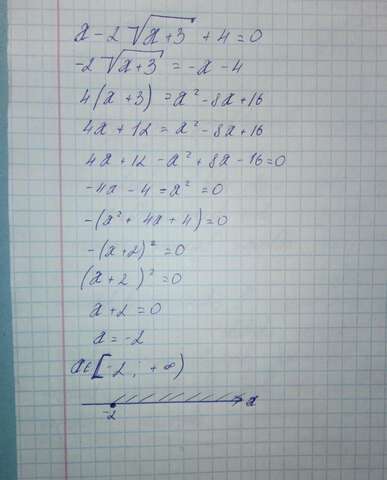 x - 2√(x+3) + 4 = 0
-2√(x+3) = -x - 4
4(x+3) = x² - 8x + 16
4x + 12 = x² - 8x + 16
4x + 12 - x² + 8x - 16 = 0
-4x - 4 - x² = 0
-(x² + 4x + 4) = 0
-(x+2)² = 0
(x+2)² = 0
x + 2 = 0
x = -2
x ∈ [-2; +∞)
-2 x